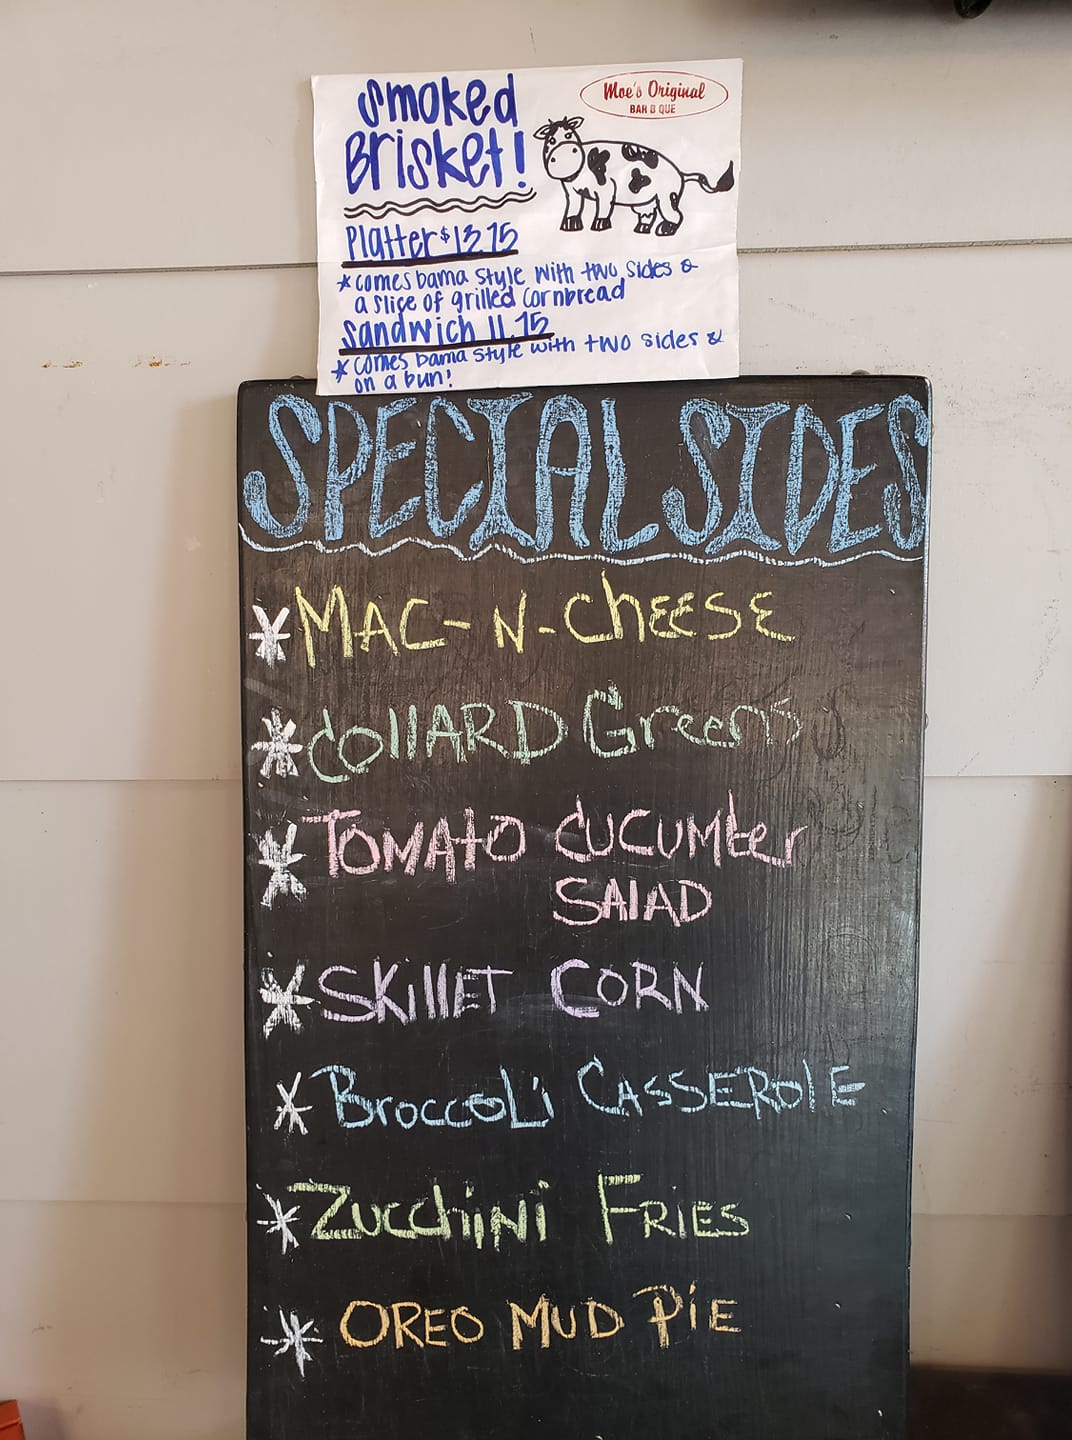 Smoked
Brisket!
Moe's Original
BAR B QUE
Platter $13.75
*comes bama style with two sides &
a slice of grilled cornbread
Sandwich 11.75
* comes bama style with two sides &
on a bun!
SPECIAL SIDES
* MAC-N-CHEESE
* COllARD Greens
* TOMAtO CUCUMber
SAlAD
* SKillET CORN
* BroccoLi CASSERolE
* ZucchiNi FRIES
* OREO MUD PiE